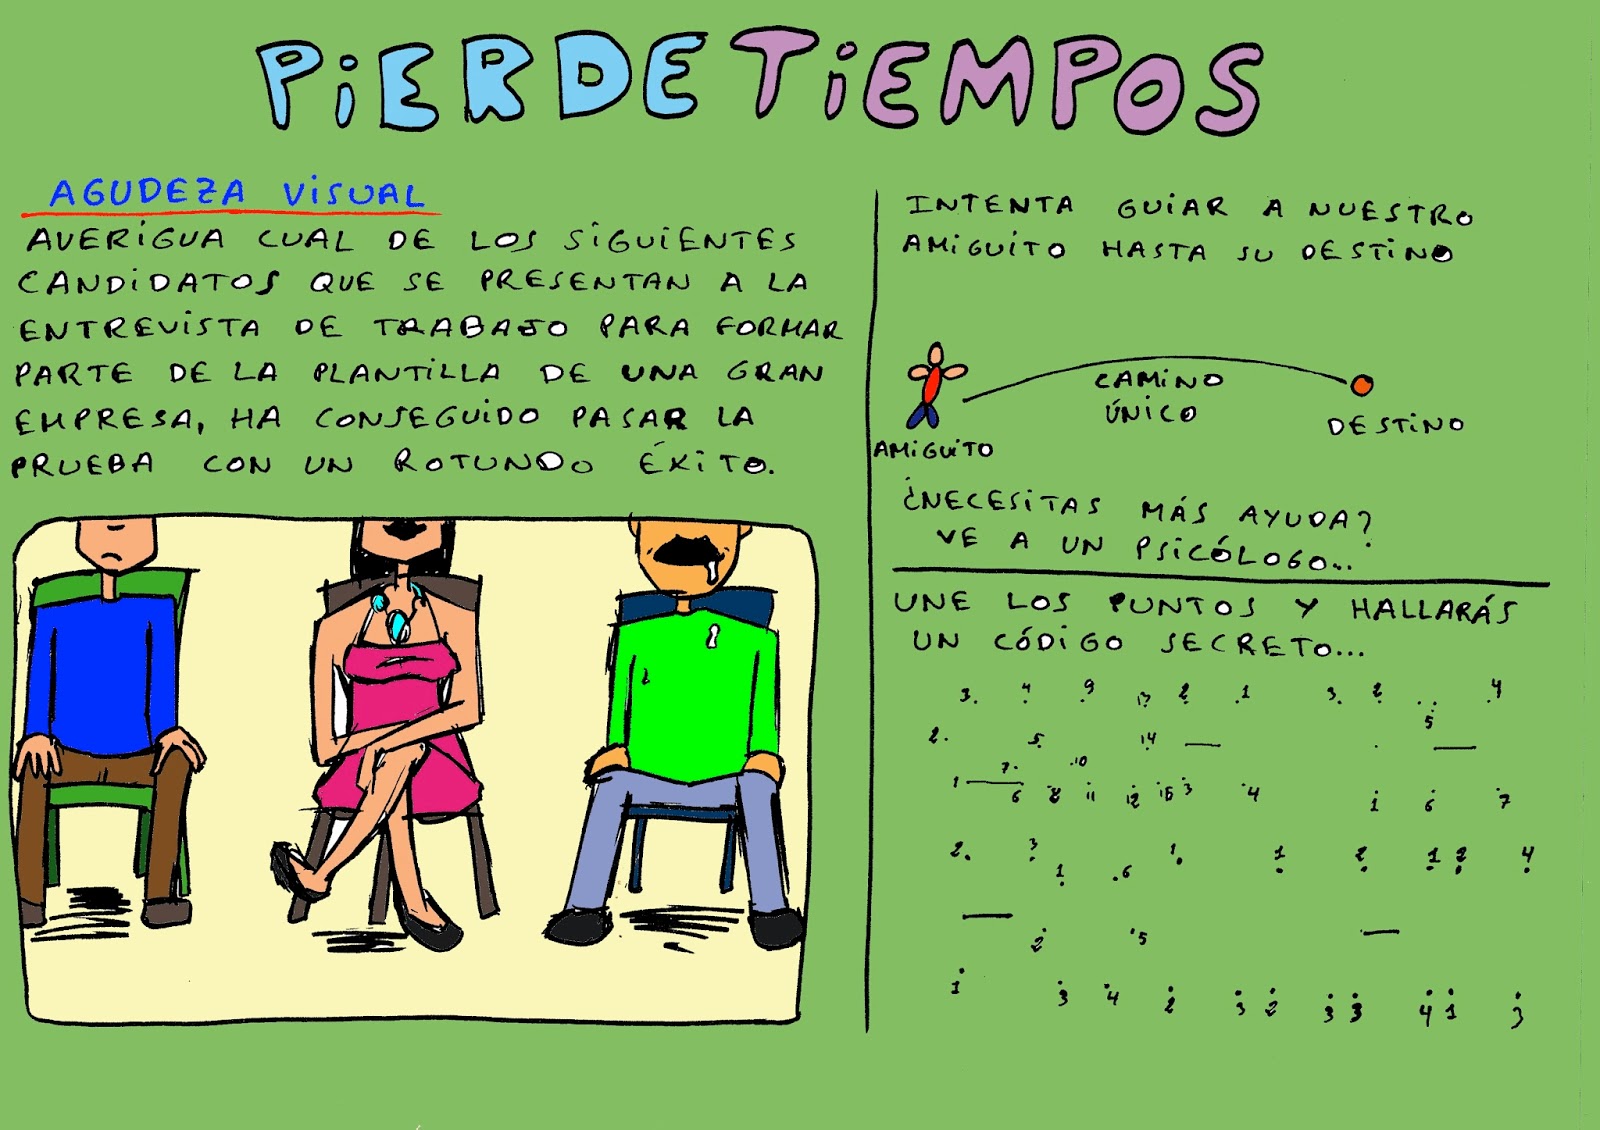 PiERDETiEMPOS
AGUDEZA ViSUAL
AVERiGUA CUAL DE LOS SiGUiENTES
CANDiDATOS QUE SE PRESENTAN A LA
ENTREViSTA DE TRABAJO PARA FORMAR
PARTE DE LA PLANTiLLA DE UNA GRAN
EMPRESA, HA CONSEGUiDO PASAR LA
PRUEBA CON UN ROTUNDO ÉXiTO.
INTENTA GUiAR A NUESTRO
AMiGUiTO HASTA SU DESTiNO
CAMiNO
ÚNiCO
DESTiNO
AMiGUiTO
¿NECESiTAS MÁS AYUDA?
VE A UN PSiCÓLOGO...
UNE LOS PUNTOS Y HALLARÁS
UN CÓDiGO SECRETO...
3. 4 9 13 2 1 3. 2 4
5
2. 5 14
7. 10
1 6 8 11 12 15 3 4 1 6 7
2. 3 1 6 1 1 2 1 2 4
2 5
1 3 4 2 3 2 3 3 4 1 3